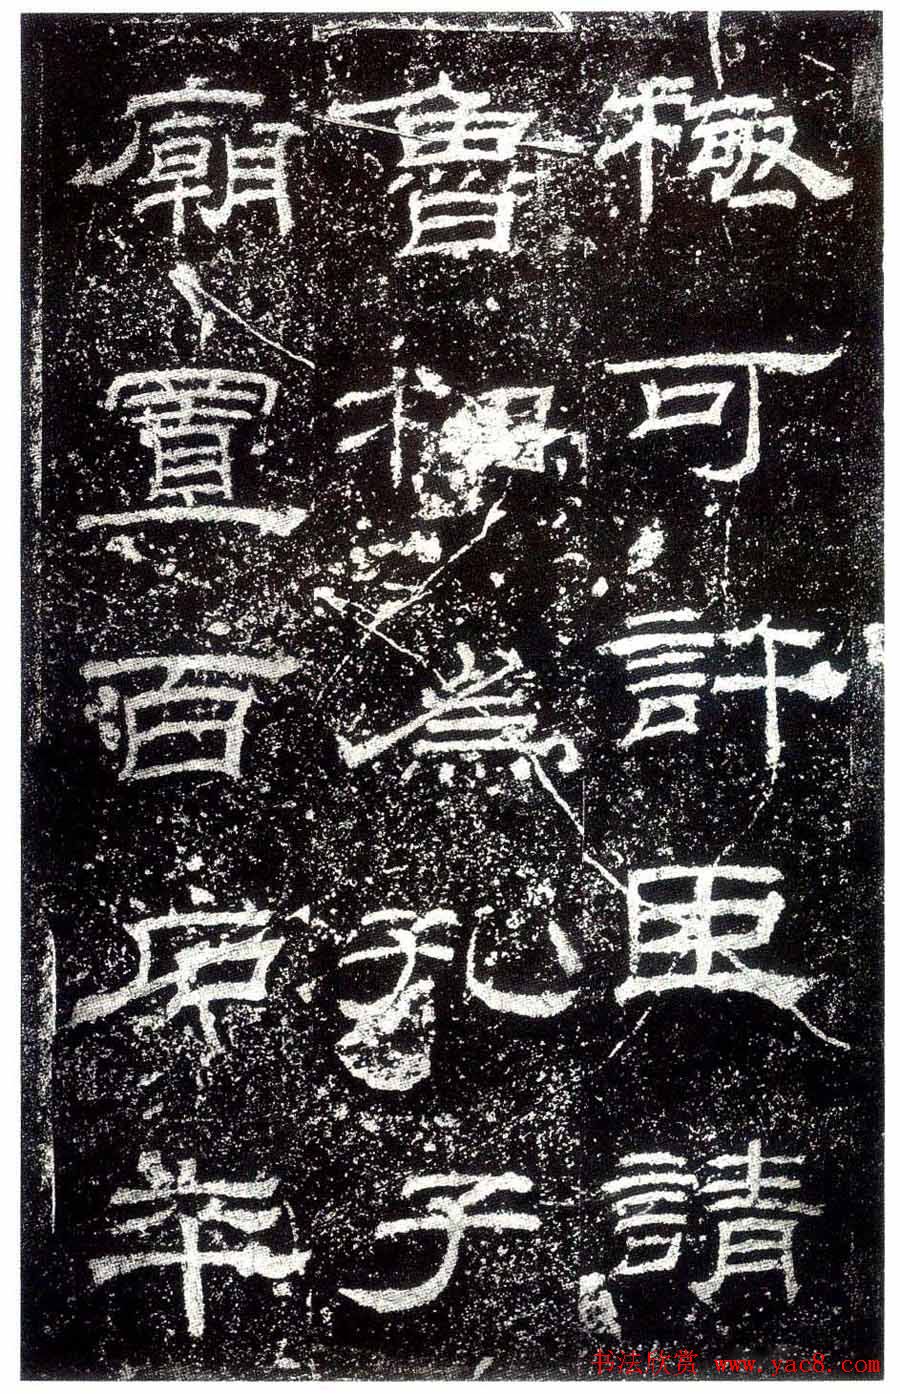 極可許臣請
魯相為孔子
廟置百石卒
书法欣赏 www.yac8.com